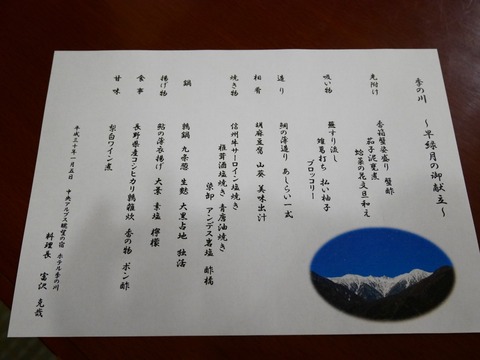 季の川 ～早緑月の御献立～
先附け 香箱蟹姿盛り 蟹酢
茄子泥煮
蛤菜の花文旦和え
吸い物 蕪すり流し
葛打ち 払い柚子
ブロッコリー
造り 鯛の薄造り あしらい一式
相肴 胡麻豆腐 山葵 美味出汁
焼き物 信州牛サーロイン塩焼き
椎茸酒塩焼き 青唐油焼き
染卸 アンデス岩塩 酢橘
鍋 鶉鍋 九条葱 生麩 大黒占地 独活
揚げ物 鮎の薄衣揚げ 大葉 素塩 檸檬
食事 長野県産コシヒカリ鶉雑炊 香の物 ポン酢
甘味 梨白ワイン煮
平成三十年一月五日 中央アルプス眺望の宿 ホテル季の川
料理長 富沢 克哉